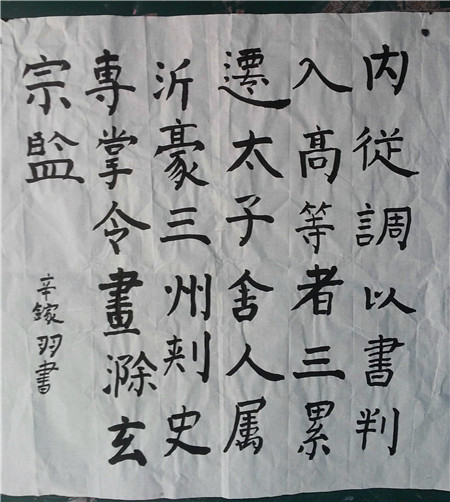 内從調以書判
入髙等者三累
遷太子舍人属
沂豪三州刾史
專掌令畫滁玄
宗監
辛鎵習書